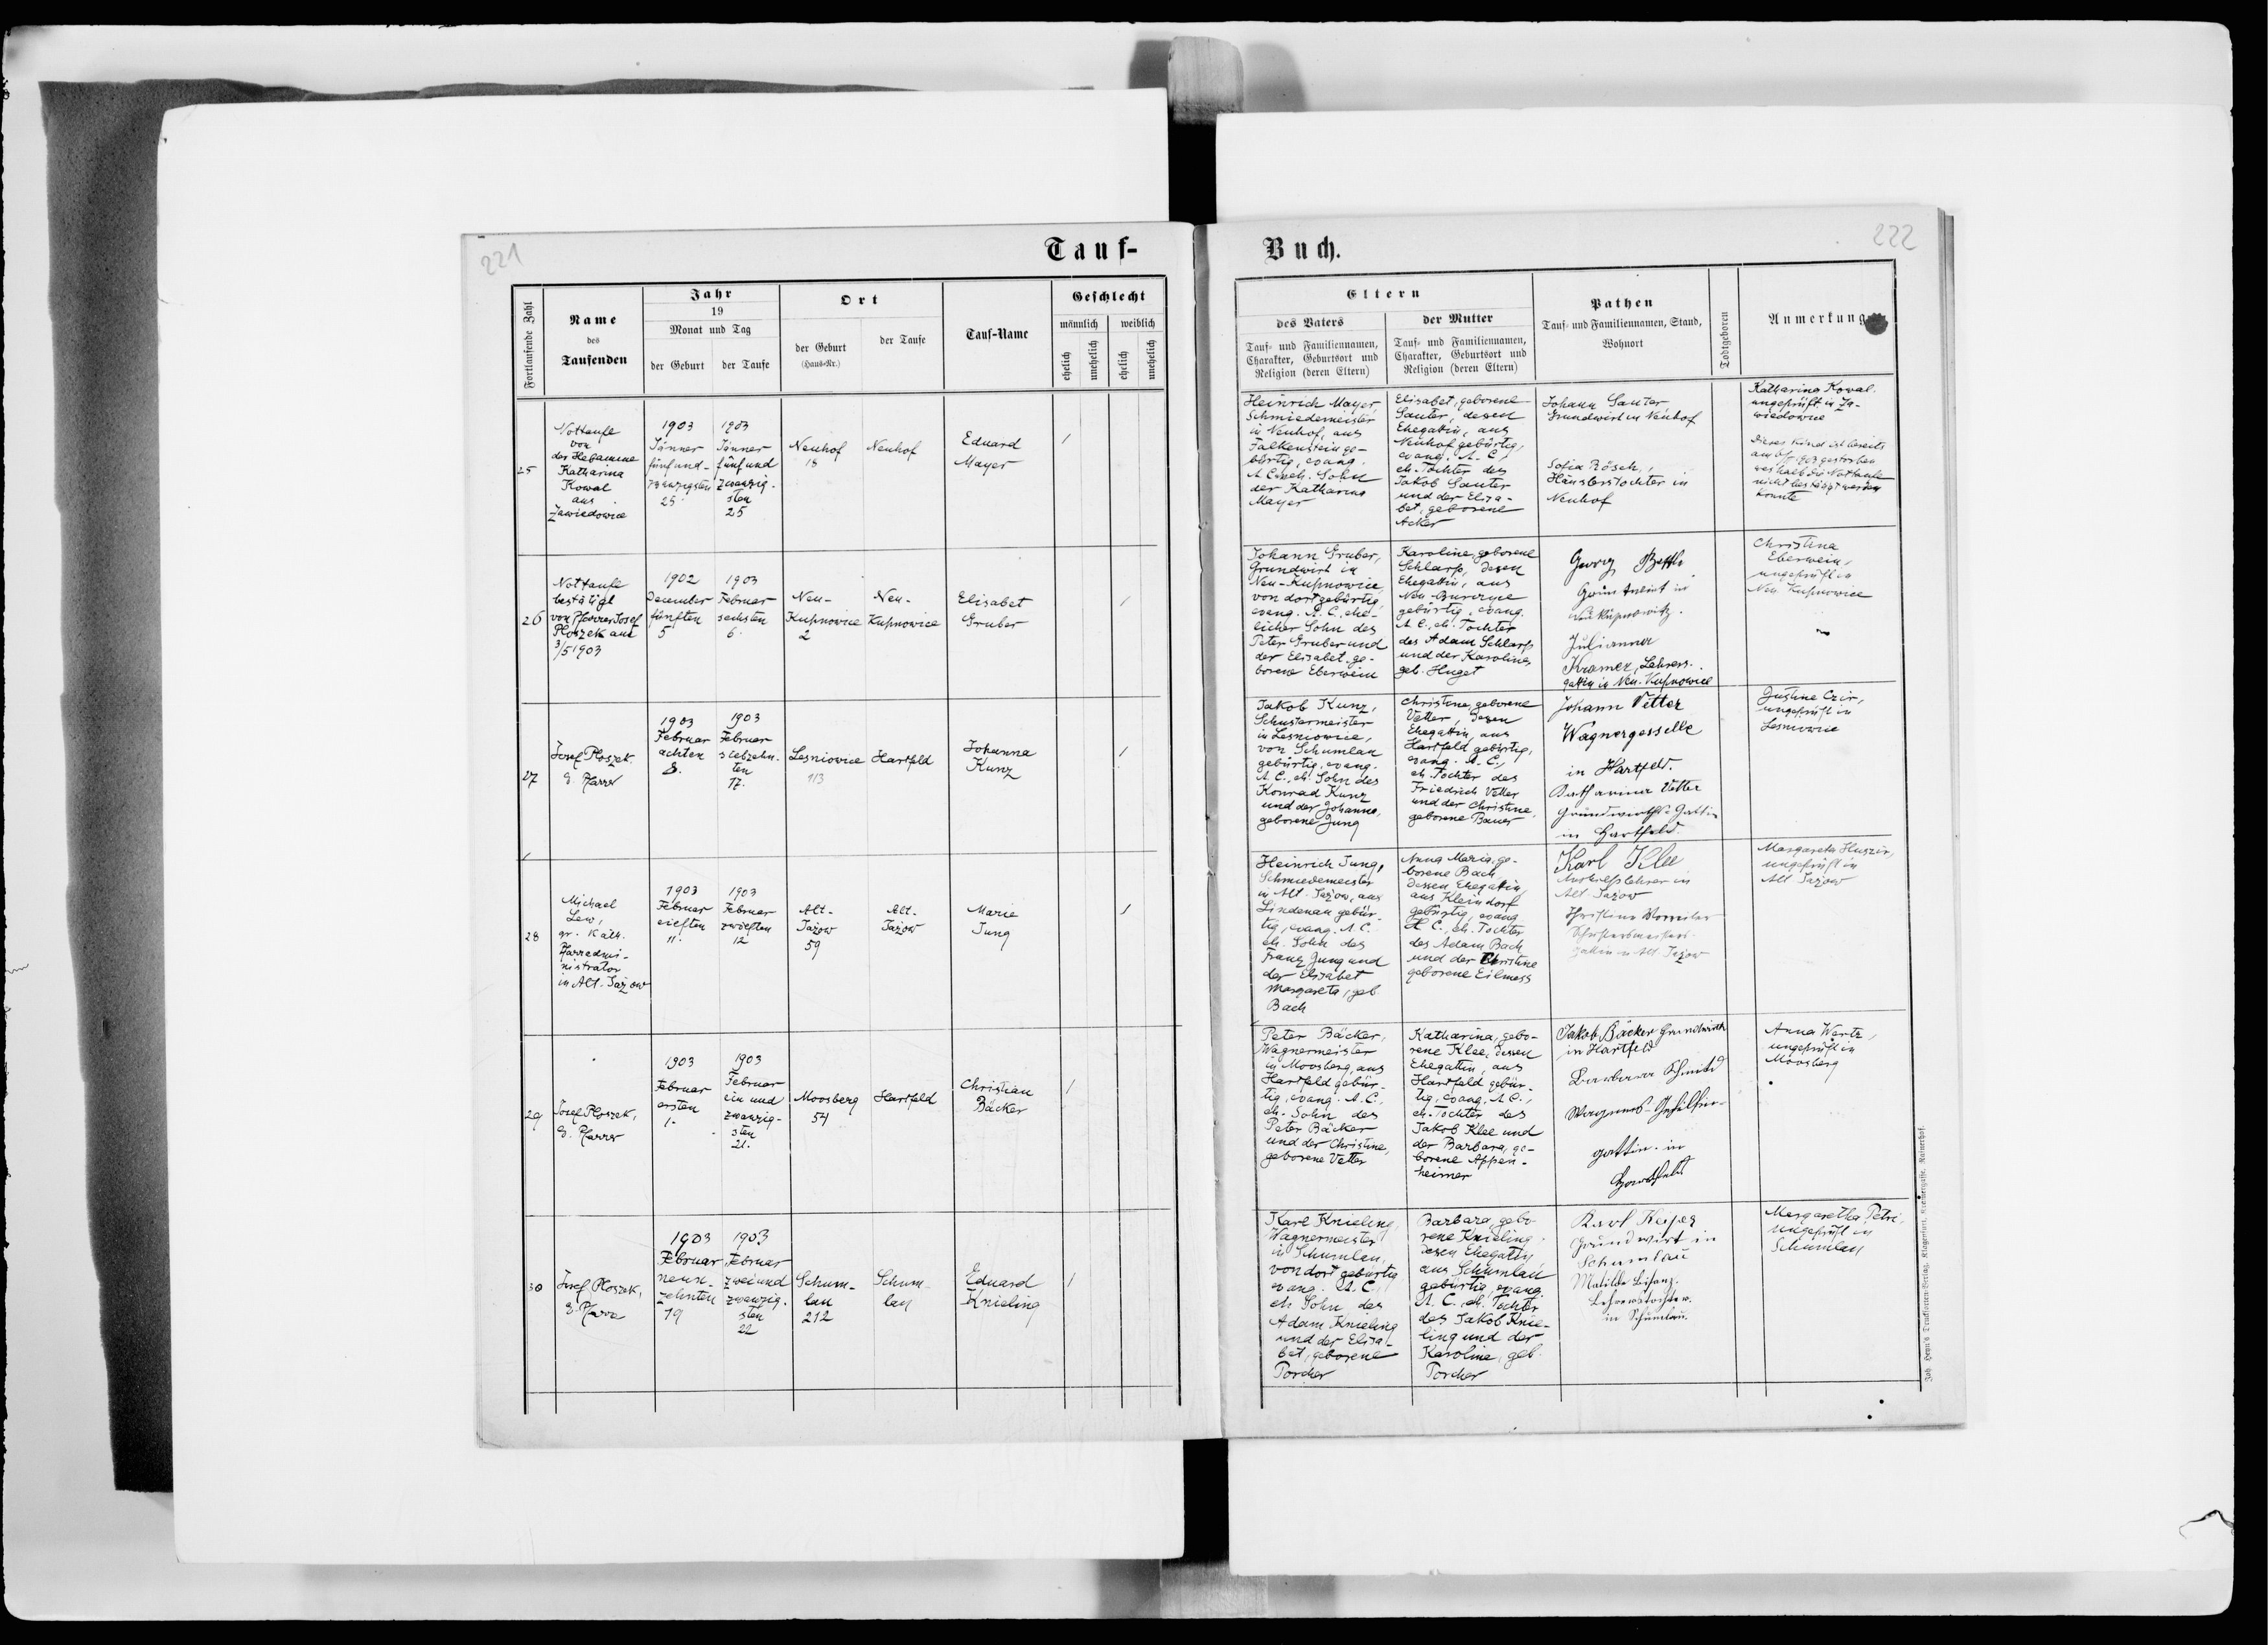 221
Tauf-
Fortlaufende Zahl
Name
des
Taufenden
Jahr
19
Monat und Tag
der Geburt
der Taufe
Ort
der Geburt
(Haus-Nr.)
der Taufe
Tauf-Name
Geschlecht
männlich
weiblich
ehelich
unehelich
ehelich
unehelich
25
Nottaufe
von
der Hebamme
Katharina
Kowal
aus
Zawiedowice
1903
Jänner
fünfund-
zwanzigsten
25
1903
Jänner
fünfund
zwanzig-
sten
25
Neuhof
18
Neuhof
Eduard
Mayer
/
26
Nottaufe
bestätigt
von Pfarrer Josef
Ploszek am
3/5 1903
1902
December
fünften
5
1903
Februar
sechsten
6.
Neu-
Kupnowice
2
Neu-
Kupnowice
Elisabet
Gruber
/
27
Josef Ploszek.
E. Pfarrer
1903
Februar
achten
8.
1903
Februar
siebzehn-
ten
17.
Lesniowice
113
Hartfeld
Johanna
Kunz
/
28
Michael
Lew,
gr. kath.
Pfarradmi-
nistrator
in Alt-Jażow
1903
Februar
eilften
11.
1903
Februar
zwölften
12
Alt-
Jażow
59
Alt-
Jażow
Marie
Jung
/
29
Josef Ploszek,
E. Pfarrer
1903
Februar
ersten
1.
1903
Februar
ein und
zwanzig-
sten
21.
Moosberg
54
Hartfeld
Christian
Bäcker
/
30
Josef Ploszek,
E. Pfarre
1903
Februar
neun-
zehnten
19
1903
Februar
zwei und
zwanzig-
sten
22
Schum-
lau
212
Schum-
lau
Eduard
Knieling
/
222
Buch.
Eltern
des Vaters
Tauf- und Familiennamen,
Charakter, Geburtsort und
Religion (deren Eltern)
der Mutter
Tauf- und Familiennamen,
Charakter, Geburtsort und
Religion (deren Eltern)
Pathen
Tauf- und Familiennamen, Stand,
Wohnort
Todtgeboren
Anmerkung
Heinrich Mayer,
Schmiedemeister
in Neuhof, aus
Falkenstein ge-
bürtig, evang.
A. C. Sohn
der Katharina
Mayer
Elisabet, geborene
Sauter, dessen
Ehegattin, aus
Neuhof gebürtig,
evang. A. C.,
eh. Tochter des
Jakob Sauter
und der Elisa-
bet, geborene
Acker
Johann Sauter
Grundwirt in Neuhof
Sofia Rösch,
Häuslerstochter in
Neuhof
Katharina Kowal.
ungeprüft in Za-
wiedowice
Dieses Kind ist bereits
am 1903 gestorben
weshalb die Nottaufe
nicht bestätigt werden
konnte
Johann Gruber,
Grundwirt in
Neu-Kupnowice,
von dort gebürtig,
evang. A. C., ehe-
licher Sohn des
Peter Gruber und
der Elisabet, ge-
borene Eberwein
Karoline, geborene
Schlarp, dessen
Ehegattin, aus
Neu-
gebürtig, evang.
A. C., eh. Tochter
des Adam Schlarp
und der Karoline,
geb. Huget
Georg
Grundwirt in
Julianna
Kramer, Lehrers-
gattin in Neu-Kupnowice
Christina
Eberwein,
ungeprüft in
Neu Kupnowice
Jakob Kunz,
Schustermeister
in Lesniowice,
von Schumlau
gebürtig, evang.
A. C., eh. Sohn des
Konrad Kunz
und der Johanna,
geborene Jung
Christine, geborene
Vetter, dessen
Ehegattin, aus
Hartfeld gebürtig,
evang. A. C.,
eh. Tochter des
Friedrich Vetter
und der Christine,
geborene Bauer
Johann Vetter
Wagnergesselle
in Hartfeld.
Katharina Vetter
Grundwirths-Gattin
in Hartfeld.
Justine Czir,
ungeprüft in
Lesniowice
Heinrich Jung,
Schmiedemeister
in Alt Jażow, aus
Lindenau gebür-
tig, evang. A. C.
eh. Sohn des
Franz Jung und
der Elisabet
Margareta, geb.
Bach
Anna Maria, ge-
borene Bach,
dessen Ehegattin,
aus Kleindorf
gebürtig, evang.
H. C., eh. Tochter
des Adam Bach
und der Christine
geborene Eilmess
Karl Klee
Aushilfslehrer in
Alt Jażow
Christine
Schustermeisters-
gattin in Alt Jażow
Margareta Huszir,
ungeprüft in
Alt Jażow
Peter Bäcker,
Wagnermeister
in Moosberg, aus
Hartfeld gebür-
tig, evang. A. C.,
eh. Sohn des
Peter Bäcker
und der Christine,
geborene Vetter
Katharina, gebo-
rene Klee, dessen
Ehegattin, aus
Hartfeld gebür-
tig, evang. A. C.,
eh. Tochter des
Jakob Klee und
der Barbara, ge-
borene Appen-
heimer
Jakob Bäcker Grundwirth
in Hartfeld
Barbara Schmidt
Wagners-Gehilfen-
gattin in
Hartfeld
Anna Wertz,
ungeprüft in
Moosberg
Karl Knieling,
Wagnermeister
in Schumlau,
von dort gebürtig
evang. A. C.,
eh. Sohn des
Adam Knieling
und der Elisa-
bet, geborene
Porcher
Barbara, gebo-
rene Knieling
dessen Ehegattin
aus Schumlau
gebürtig, evang.
A. C., eh. Tochter
des Jakob Knie-
ling und der
Karoline, geb.
Porcher
Karl
Grundwirt in
Schumlau
Matilde Bisanz.
Lehrerstochter.
in Schumlau.
Margaretha Petri,
ungeprüft in
Schumlau
Joh. Heyn's Drucksorten-Verlag, Klagenfurt, Kramergasse, Rainerhof.